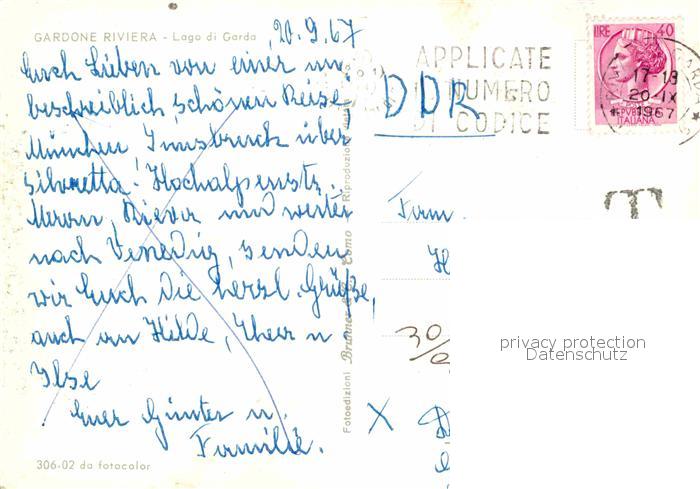 GARDONE RIVIERA - Lago di Garda
20.9.67
Euch Lieben von einer un-
beschreiblich schönen Reise
München, Innsbruck über
Silvretta-Hochalpenstr.
Meran, Riva und weiter
nach Venedig, senden
wir Euch die herzl. Grüße,
auch an Hilde, u
Ilse
Euer Günter u.
Familie.
306-02 da fotocolor
Fotoedizioni Brunner & C. Como Riproduzione
APPLICATE
NUMERO
DI CODICE
DDR
LIRE 40
17-18
20-IX
1967
REPUBBLICA
ITALIANA
T
Firm
H
30/
X
privacy protection
Datenschutz